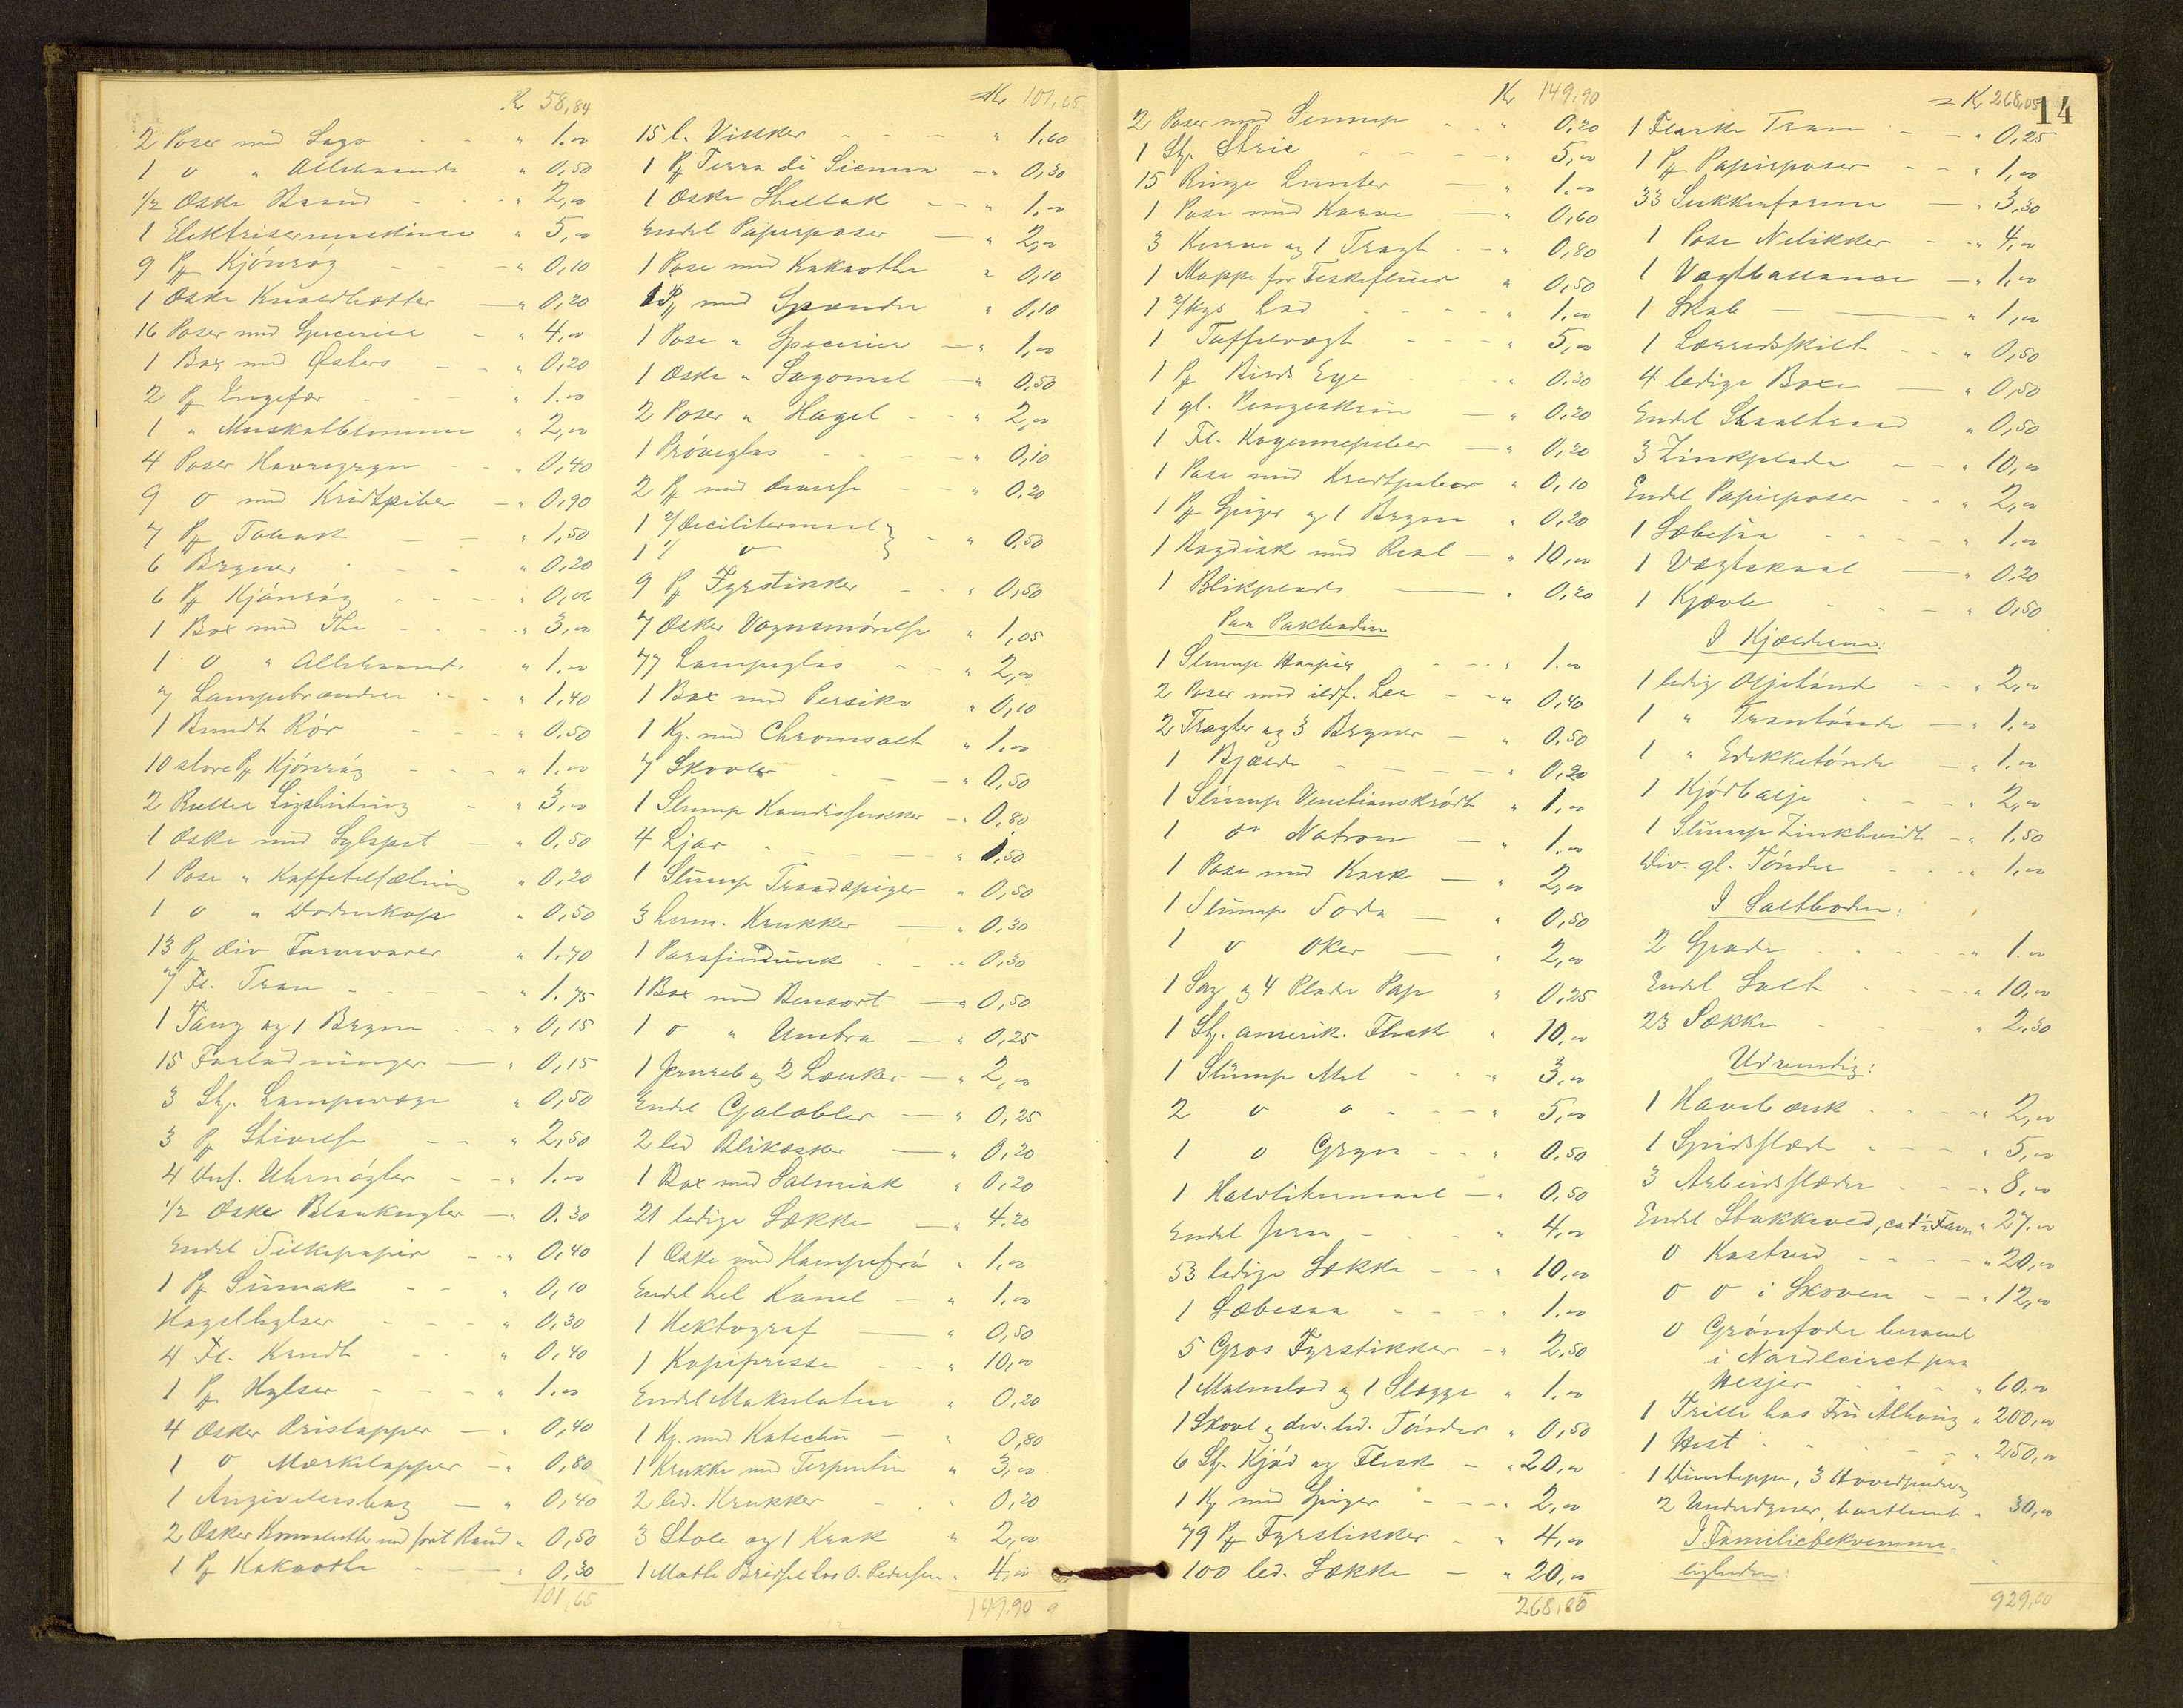 Kr 58,84
2 Poser med Sago - - " 1.00
1 o " Allehaande " 0,50
1/2 Æske Baand - - " 2,00
1 Elektrisermaskine " 5,00
9 Pk Kjönrög - - " 0,10
1 Æske Knaldhætter - " 0,20
16 Poser med Specerier - " 4,00
1 Box med Østers - " 0,20
2 Pk Ingefær - - " 1.00
1 " Muskatblomme " 2,00
4 Poser Havregryn - " 0,40
9 o med Kridtpiber - " 0,90
7 Pk Tobak - - " 1,50
6 Bryner - - " 0,20
6 Pk Kjönrög - - " 0,06
1 Box med The - - " 3,00
1 o " Allehaande " 1.00
7 Lampebrændere - " 1,40
1 Bundt Rör - - " 0,50
10 store Pk Kjönrög - - " 1.00
2 Ruller Ligshirting - " 3,00
1 Æske med Sylspet - " 0,50
1 Pose " Kaffetilsætning " 0,20
1 o " Dodenkop " 0,50
13 Pk div Farvevarer " 1.70
7 Fl. Tran - - - " 1.75
1 Tang og 1 Bryne - " 0,15
15 Forladninger - " 0,15
3 Stk. Lampevæge " 0,50
3 Pk Stivelse - - " 2,50
4 Dus. Uhrnögler - - " 1.00
1/2 Æske Blankugler - " 0.30
Endel Silkepapir - - " 0,40
1 Pk Sumak - - " 0,10
Hagelhylser - - - " 0,30
4 Fl. Krudt - - " 0,40
1 Pk Hylser - - - " 1.00
4 Æsker Prislapper - " 0,40
1 o Mærkelapper - " 0,80
1 Angivelsesbog - " 0,40
2 Æsker Konvolutter med sort Rand " 0,50
1 Pk Kakaothe - - " 0,30
101,65
Kr 101,65
15 l. Vikker - - - " 1,60
1 Pk Terra di Sienna - " 0,30
1 Æske Shellak - - " 1.00
Endel Papirposer - " 2,00
1 Pose med Kakaothe " 0,10
1 Pk med Spændre " 0,10
1 Pose " Specerier - " 1,00
1 Æske " Sagomel - " 0,50
2 Poser " Hagel - - " 2,00
1 Pröveglas - - - " 0,10
2 Pk med - - " 0.20
1 2/Decilitermaal } - " 0,50
1 1/ o
9 Pk Fyrstikker - - " 0,50
7 Æsker Vognsmörelse " 1,05
77 Lampeglas - - " 2,00
1 Box med Persiko " 0,10
1 Kg. med Chromsalt " 1.00
7 Skovler - - - " 0,50
1 Slump Kandissukker - " 0,80
4 Ljar - - - " 1,50
1 Slump Traadspiger " 0,50
3 herm. Krukker - " 0,30
1 Parafindunk - - " 0,30
1 Box med Bensort - " 0,50
1 o " Umbra - " 0,25
1 Jernreb og 2 Lænker - " 2,00
Endel Galæbler - " 0,25
2 led Blikæsker - " 0,20
1 Box med Salmiak " 0,20
21 ledige Sække - " 4.20
1 Æske med Hampefrö " 1,00
Endel hel Kanel - " 1.00
1 Hektograf - " 0,50
1 Kopipresse - - " 10,00
Endel Makulatur " 0,20
1 Kg. med Katechu - " 0,80
1 Krukke med Terpentin " 3,00
2 led. Krukker - " 0,20
3 Stole og 1 Krak " 2,00
1 Matte Bridsel hos O. Pedersen " 4,00
149.90
Kr 149.90
2 Poser med Sennep - - " 0,20
1 Stk. Strie - - - " 5,00
15 Ringe Lunter - " 1.00
1 Pose med Karve - " 0,60
3 Kurve og 1 Tragt - " 0,80
1 Mappe for Fiskefluer " 0,50
1 2/kgs Lod - - - " 1.00
1 Taffelvægt - - " 5,00
1 Pk Birds Eye - - " 0.30
1 gl. Pengeskrin - " 0.20
1 Fl. Kayennepeber - " 0,20
1 Pose med Kridtpiber " 0,10
1 Pk Spiger og 1 Bryne " 0,20
1 Bagdisk med Reol - " 10,00
1 Blikpande - " 0,20
Paa Pakboden
1 Slump Harpix - - " 1.00
2 Poser med ildf. Ler - " 0,40
2 Tragter og 3 Bryner - " 0.50
1 Bjælde - - - " 0,20
1 Slump Venetianskrödt " 1,00
1 o Natron - " 1.00
1 Pose med Kork - " 2,00
1 Slump Soda - " 0,50
1 o Oker - " 2,00
1 Sag og 4 Plader Pap " 0,25
1 Stk. amerik. Flesk " 10,00
1 Slump Mel - - " 3,00
2 o o - - " 5,00
1 o Gryn - - " 0.50
1 Halvlitermaal - " 0,50
Endel Jern - - " 4,00
53 ledige Sække - - " 10,00
1 Sæbesaa - - - " 1.00
5 Gros Fyrstikker - " 2,50
1 Malmlod og 1 Slægge " 1,00
1 Skovl og div. led. Tönder " 0,50
6 Stk. Kjöd og Flesk - " 20,00
1 Kg med Spiger - - " 2,00
79 Pk Fyrstikker - " 4,00
100 led. Sække - " 20,00
268,05
14
Kr 268,05
1 Flaske Tran - - " 0,25
1 Pk Papirposer - - " 1,00
33 Sukkerforme - " 3,30
1 Pose Nelikker - " 4,00
1 Vægtballance - " 1,00
1 Skab - " 1,00
1 Lærredsskilt - - " 0,50
4 ledige Boxe - " 0,50
Endel Staaltraad " 0,50
3 Zinkplader - - " 10,00
Endel Papirposer - - " 2,00
1 Sæbesaa - - - " 1.00
1 Vægtskaal - " 0,20
1 Kjævle - - " 0,50
I Kjælderen:
1 ledig Oljetönde - - " 2,00
1 " Trantönde - " 1.00
1 " Edikketönde - " 1.00
1 Kjödbalje - - " 2,00
1 Slump Zinkhvidt - " 1,50
Div. gl. Tönder - - " 1,00
I Saltboden:
2 Spader - - - " 1.00
Endel Salt - - - " 10,00
23 Sække - - " 2.30
Udvendig:
1 Havebænk - - - " 2,00
1 Spidsslæde - - - " 5,00
3 Arbeidsslæder - - " 8,00
Endel Stakkeved, ca 1 1/2 Favn " 27.00
o Kastved - - - " 20,00
o o i Skoven - - " 12,00
o Grönfoder
i Nordleiret paa
Hesjer - - - " 60,00
1 Trille hos Fru Alhaug " 200,00
1 Hest - - - - " 250,00
1 Dunteppe, 3 Hovedpuder og
2 Underdyner, bortlaant " 30,00
I Familiebekvemme-
ligheden:
929,60